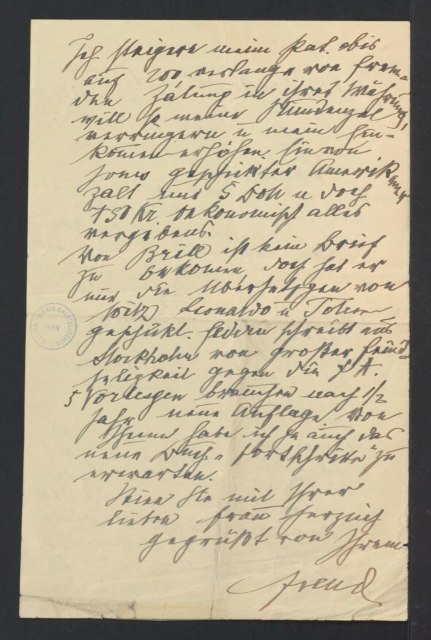 Ich steigere meine Pat. bis
auf 200 verlange von Frem-
den Zalung in ihrer Währung,
will so meine Stundenzal
verringern u mein Ein-
kommen erhöhen. Ein von
Jones geschickter Amerikaner
zalt mir 5 Doll u doch
750 Kr. oekonomisch alles
vergebens.
Von Brill ist kein Brief
zu bekommen, doch hat er
mir die Übersetzgen von
Witz Leonardo u Totem
geschickt. schreibt aus
Stockholm von großer Feind
seligkeit gegen die ΨA.
5 Vorlesgen brauchen nach 1/2
Jahr neue Auflage Von
Ihnen habe ich ja auch das
neue Buch „Fortschritte“ zu
erwarten.
Seien Sie mit Ihrer
lieben Frau herzlich
gegrüßt von Ihrem
Freud